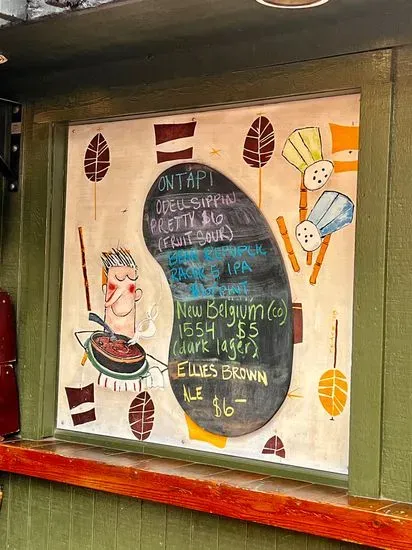 ON TAP!
ODELL SIPPIN
PRETTY $6
(FRUIT SOUR)
IPA
NEW Belgium (CO)
1554 $5
(dark lager)
ELLIES BROWN
ALE $6-